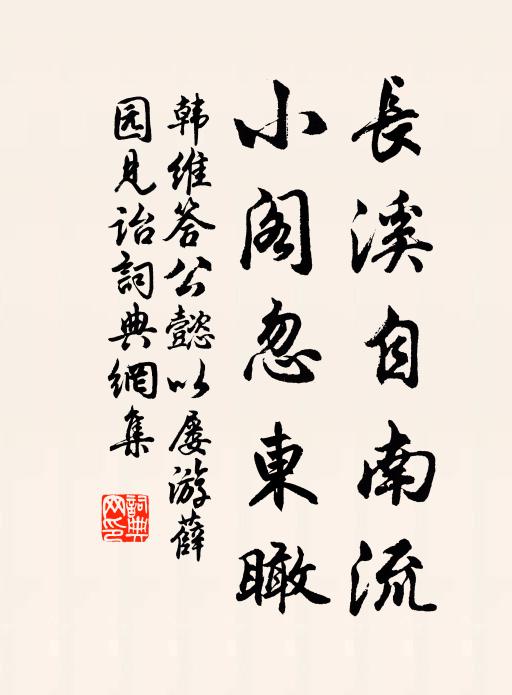 長溪自南流
小阁忽東瞰
韩维答公懿以屡游薛
园见诒詞典網集
詞典
网印